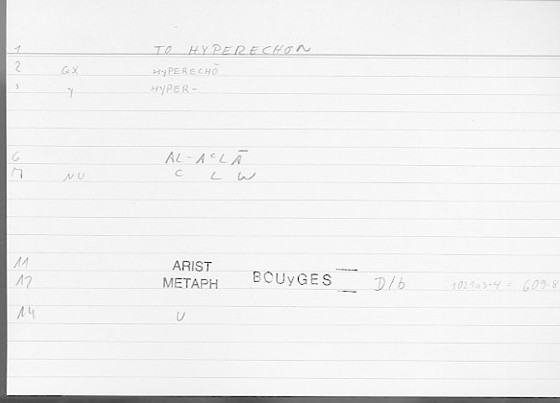 1 TO HYPERECHON
2 GX HYPERECHŌ
3 y HYPER-
6 AL-AᶜLĀ
7 NU C L W
11 ARIST
12 METAPH BOUyGES D/b 1021a3-4 = 609.8
14 U